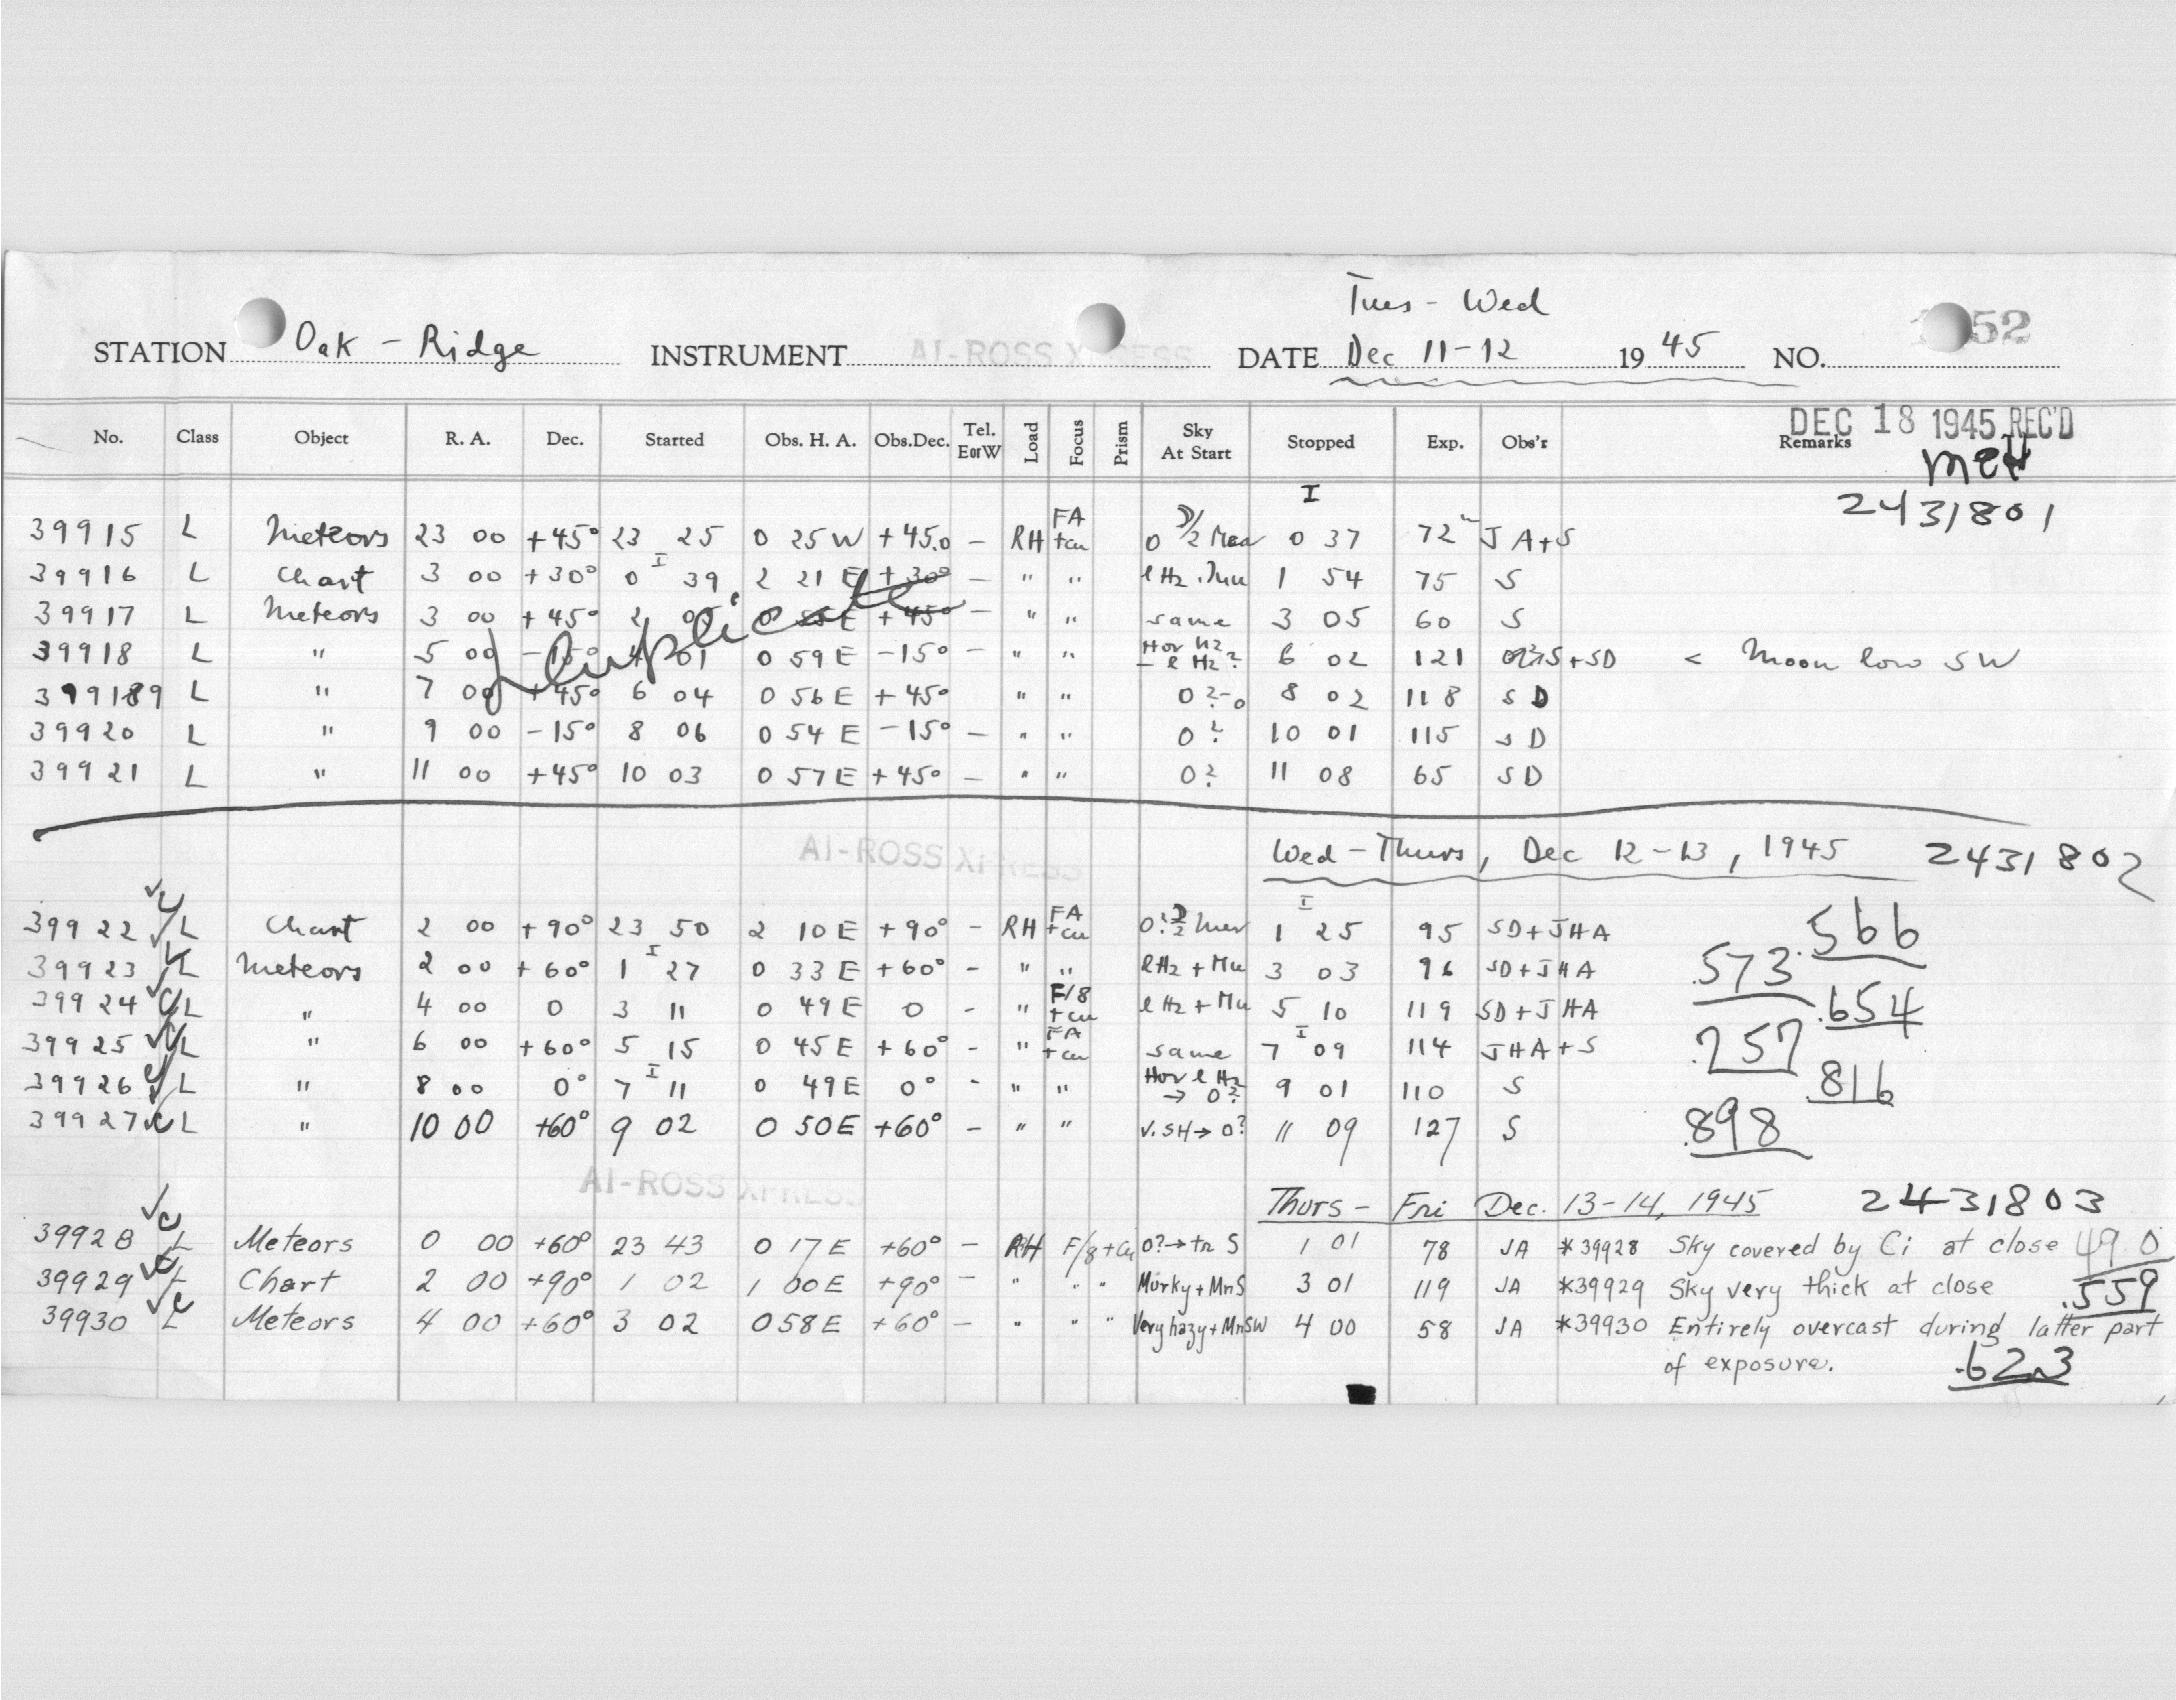 Tues - Wed
STATION Oak - Ridge INSTRUMENT AI-ROSS XPRESS DATE Dec 11-12 1945 NO. 52
DEC 18 1945 REC'D
No. Class Object R. A. Dec. Started Obs. H. A. Obs.Dec. Tel. EorW Load Focus Prism Sky At Start Stopped Exp. Obs'r Remarks
2431801
39915 L Meteors 23 00 +45° 23 25 0 25 W +45.0 - RH FA +cu 0 I 0 37 72m JA+S
39916 L Chart 3 00 +30° 0 I 39 2 21 E +30° - " " lHz 1 54 75 S
39917 L Meteors 3 00 +45° 2 05 0 55 E +45° - " " same 3 05 60 S
Duplicate
39918 L " 5 00 -15° 4 01 0 59 E -15° - " " Hor Hz - lHz? 6 02 121 S+SD < Moon low SW
399189 L " 7 00 +45° 6 04 0 56 E +45° - " " 0?-0 8 02 118 SD
39920 L " 9 00 -15° 8 06 0 54 E -15° - " " 0? 10 01 115 SD
39921 L " 11 00 +45° 10 03 0 57 E +45° - " " 0? 11 08 65 SD
AI-ROSS XPRESS
Wed - Thurs, Dec 12-13, 1945 2431802
39922 L Chart 2 00 +90° 23 50 2 10 E +90° - RH FA +cu 0? I 1 25 95 SD+JHA .566
39923 L Meteors 2 00 +60° 1 I 27 0 33 E +60° - " " lHz + Mu 3 03 96 SD+JHA .573
39924 L " 4 00 0 3 11 0 49 E 0 - " F/8 +cu lHz + Mu 5 10 119 SD+JHA .654
39925 L " 6 00 +60° 5 15 0 45 E +60° - " FA +cu same 7 I 09 114 JHA+S .757
39926 L " 8 00 0° 7 I 11 0 49 E 0° - " " Hor lHz → 0? 9 01 110 S .816
39927 L " 10 00 +60° 9 02 0 50 E +60° - " " V.SH → 0? 11 09 127 S .898
AI-ROSS XPRESS
Thurs - Fri Dec. 13-14, 1945 2431803
39928 L Meteors 0 00 +60° 23 43 0 17 E +60° - RH F/8+Cu 0?→tn S 1 01 78 JA *39928 Sky covered by Ci at close 490
39929 L Chart 2 00 +90° 1 02 1 00 E +90° - " " " Murky+MnS 3 01 119 JA *39929 Sky very thick at close .559
39930 L Meteors 4 00 +60° 3 02 0 58 E +60° - " " " Very hazy+MnSW 4 00 58 JA *39930 Entirely overcast during latter part
of exposure. .623